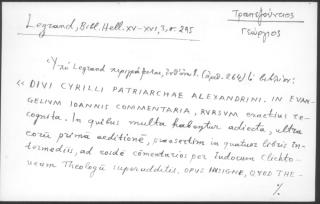 Legrand, Bibl. Hell. XV-XVI, 3, σ. 295
Τραπεζούντιος
Γεώργιος
Ὑπὸ Legrand περιγράφεται, (ἀριθ. 264) τὸ βιβλίον:
« DIVI CYRILLI PATRIARCHAE ALEXANDRINI. IN EVAN-
GELIUM IOANNIS COMMENTARIA, RVRSVM exactius re-
cognita. In quibus multa habentur adiecta, ultra
corū primā aeditionē, praesertim in quatuor libris in-
termediis, ad commentarios per Iudocum Clichto-
veum Theologū superadditis. OPUS INSIGNE, QVOD THE-
%